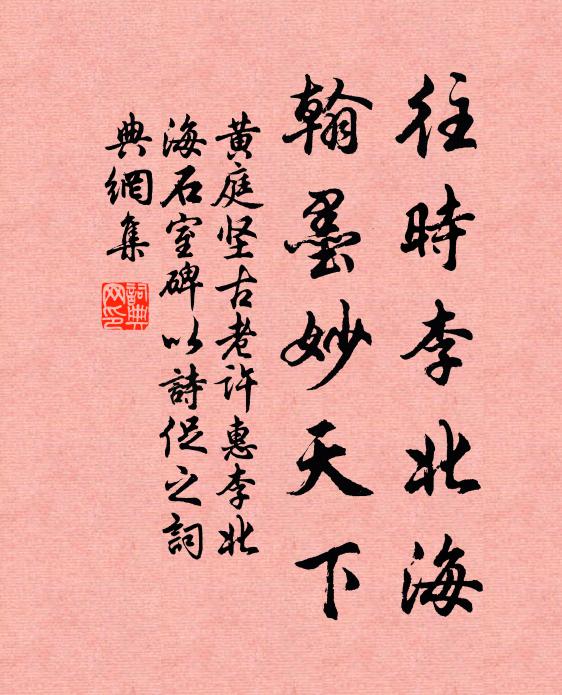 往時李北海
翰墨妙天下
黄庭坚古老许惠李北
海石室碑以詩促之詞
典網集
詞典网印